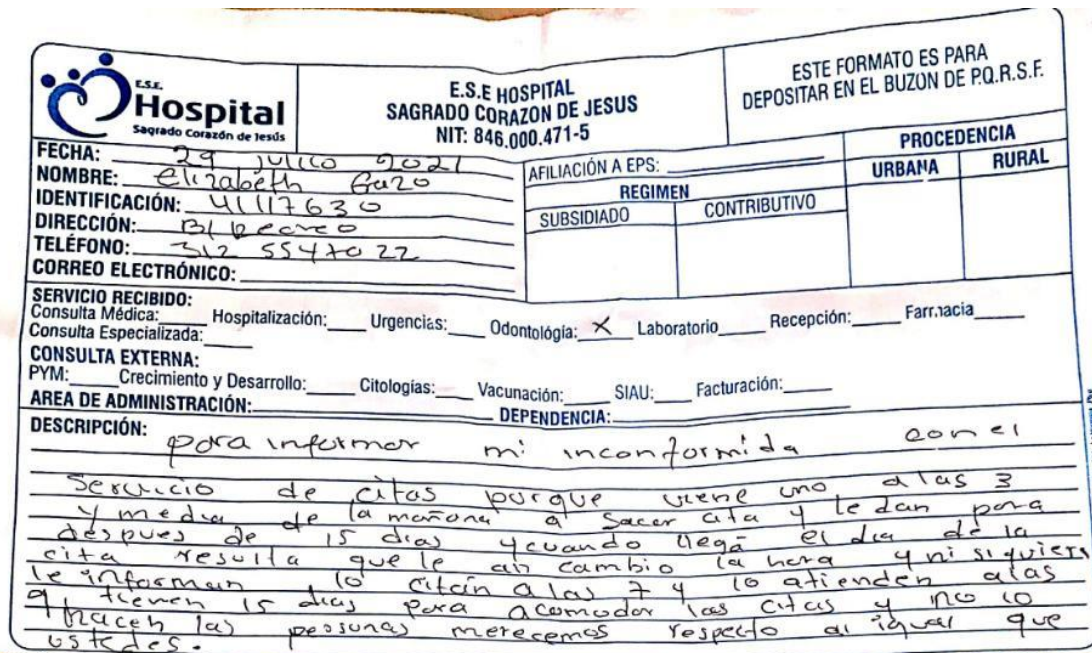 E.S.E.
Hospital
Sagrado Corazón de Jesús
E.S.E HOSPITAL
SAGRADO CORAZON DE JESUS
NIT: 846.000.471-5
ESTE FORMATO ES PARA
DEPOSITAR EN EL BUZON DE P.Q.R.S.F.
FECHA: 29 julico 2021
NOMBRE: elizabeth Garo
IDENTIFICACIÓN: 41117630
DIRECCIÓN: B/ Recreo
TELÉFONO: 312 5547022
CORREO ELECTRÓNICO:
AFILIACIÓN A EPS:
REGIMEN
SUBSIDIADO CONTRIBUTIVO
PROCEDENCIA
URBANA RURAL
SERVICIO RECIBIDO:
Consulta Médica: Hospitalización: Urgencias: Odontológia: X Laboratorio Recepción: Farmacia
Consulta Especializada:
CONSULTA EXTERNA:
PYM: Crecimiento y Desarrollo: Citologías: Vacunación: SIAU: Facturación:
AREA DE ADMINISTRACIÓN: DEPENDENCIA:
DESCRIPCIÓN: para informar mi inconformida con el
Servicio de citas porque viene uno a las 3
y media de la mañana a Sacar cita y le dan para
despues de 15 dias y cuando llega el dia de la
cita resulta que le an cambio la hora y ni siquiera
le informan lo citan a las 7 y lo atienden alas
9 tienen 15 dias para acomodar las citas y no lo
hacen las personas merecemos respecto al igual que
ustedes.